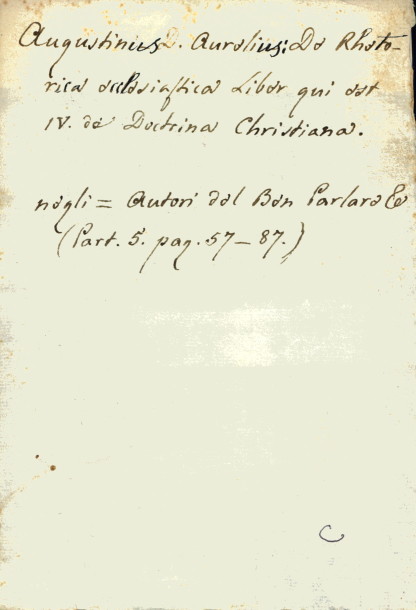 Augustinus D. Aurelius: De Rheto-
rica ecclesiastica Liber qui est
IV. de Doctrina Christiana.
negli = Autori del Ben Parlare &c
(Part. 5. pag. 57 — 87.)
C